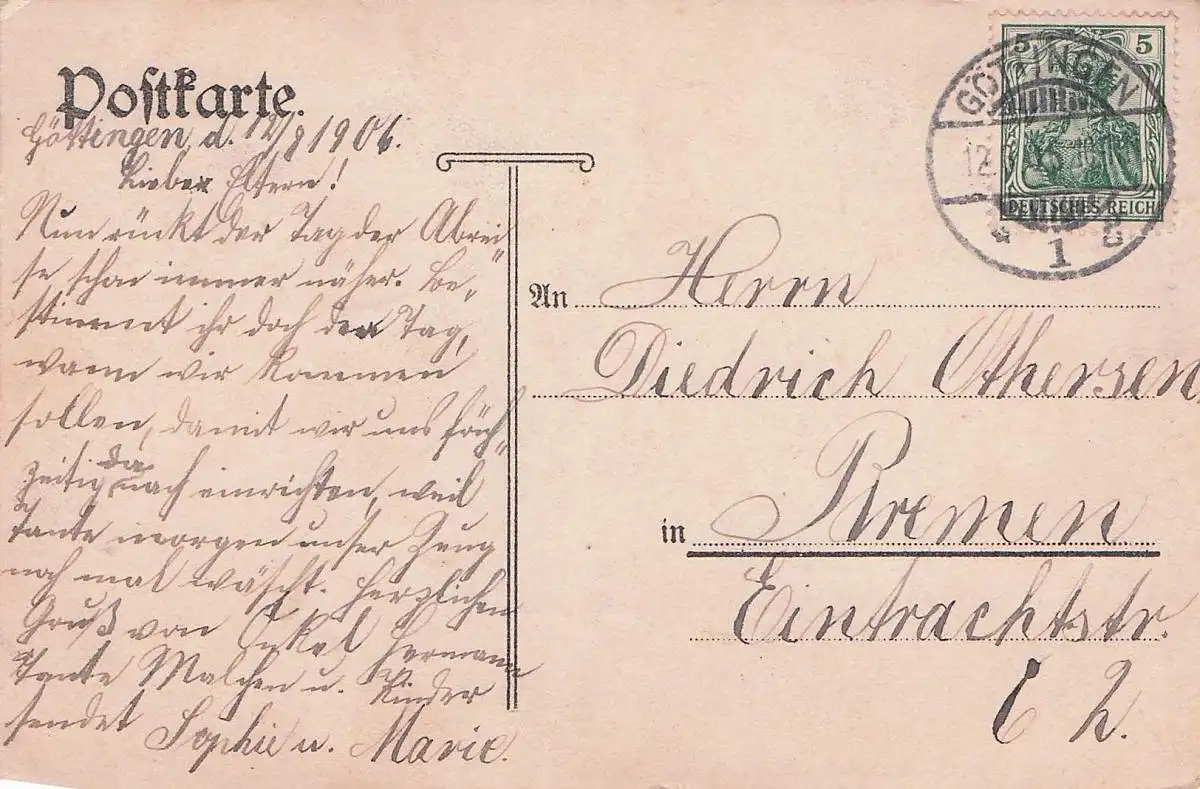 Postkarte.
Göttingen, d. 12/8 1906.
Lieber Eltern!
Nun rückt der Tag der Abrei-
se schon immer näher. Be-
stimmt ihr doch den Tag,
wann wir kommen
sollen, damit wir uns früh-
zeitig danach einrichten, weil
Tante morgen unser Zeug
noch mal wäscht. Herzlichen
Gruß von Onkel Hermann
Tante Malchen u. Kinder
sendet Sophie u. Marie.
5 5
DEUTSCHES REICH
GÖTTINGEN
12.
1
An Herrn
Diedrich Othersen
in Bremen
Eintrachtstr.